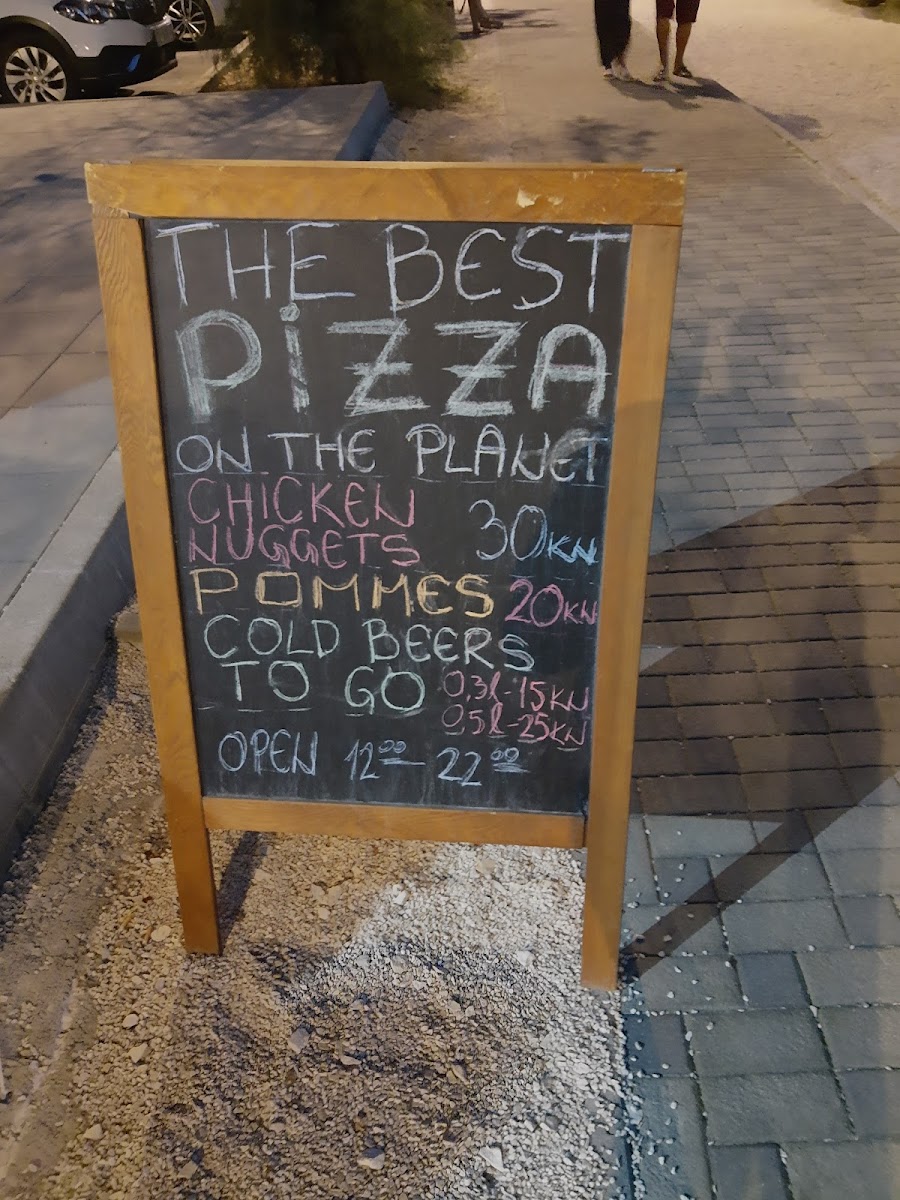 THE BEST
PiZZA
ON THE PLANET
CHICKEN
NUGGETS 30KN
POMMES 20KN
COLD BEERS
TO GO 0,3l-15KN
0,5l-25KN
OPEN 12⁰⁰ - 22⁰⁰